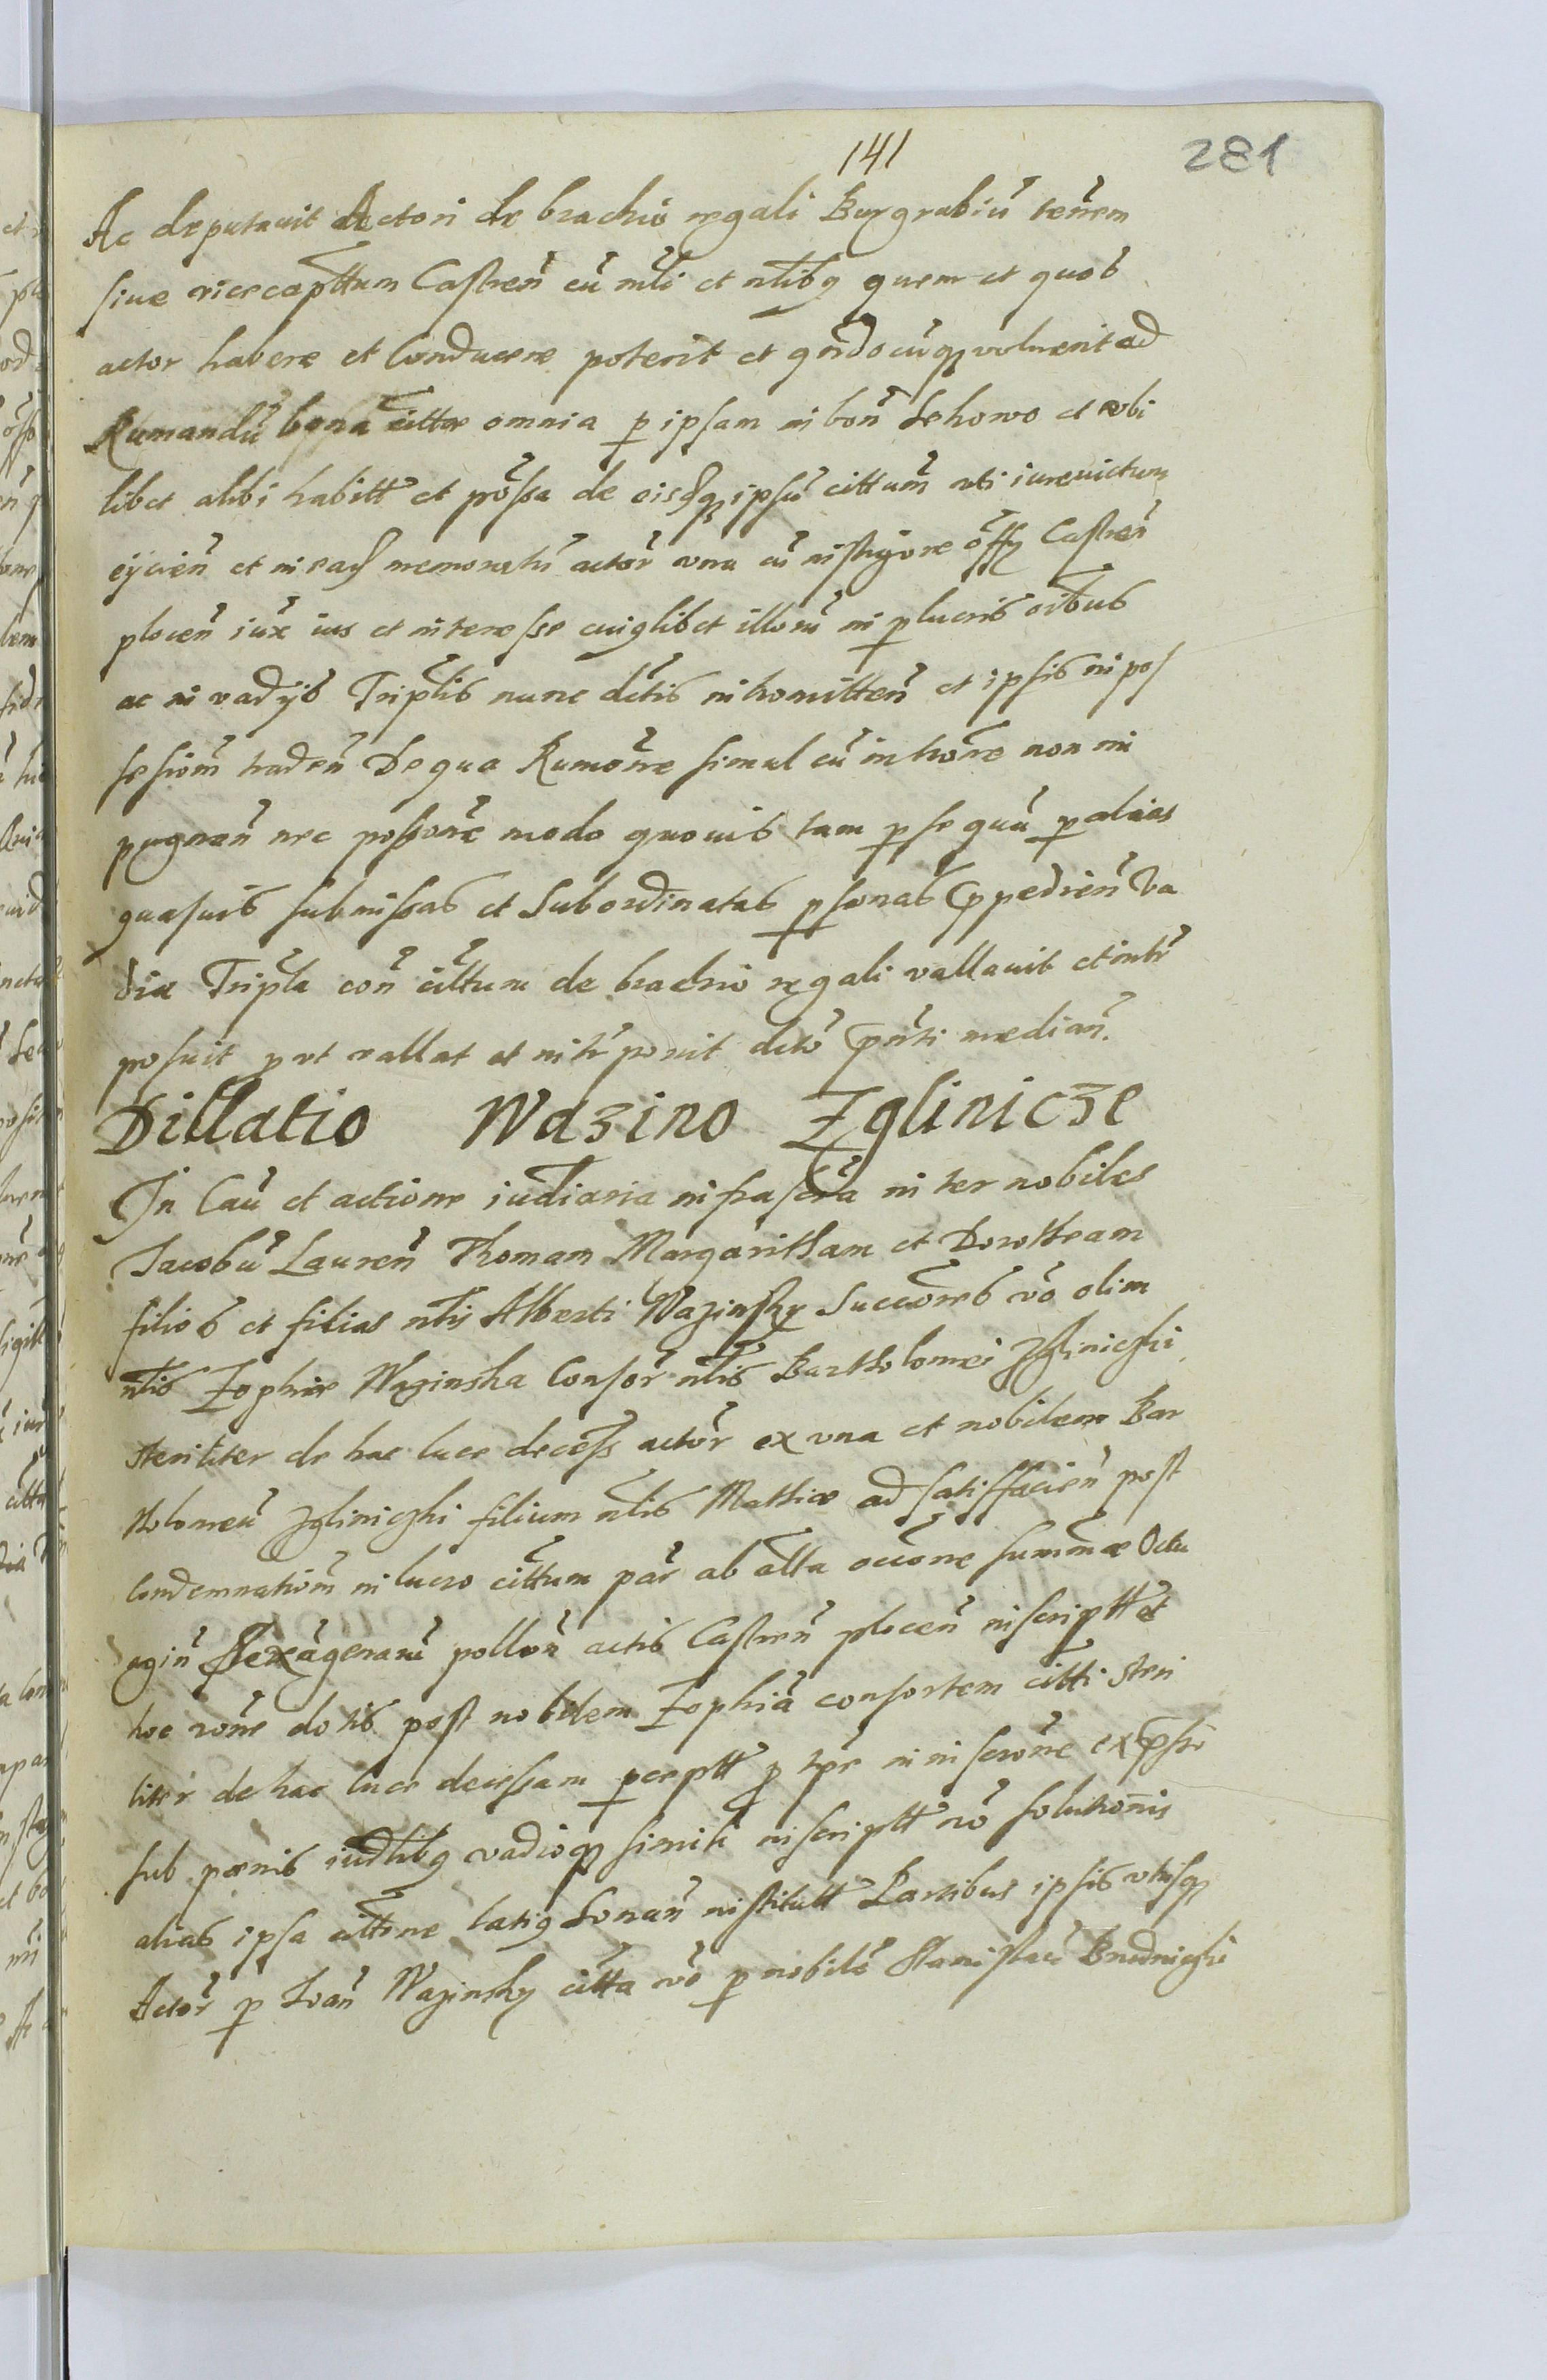 141
281
Ac deputavit Actori de brachio regali Burgrabiu tenem
siue vicecapttum Castren cu mlti et nlibq quem et quos
actor habere et Conducere poterit et qndocuq voluerit ad
Rumandu bona citte omnia p ipsam in bon Lehowo et vbi
libet alibi habitt et possa de eisdq ipsu cittum vti iurevictum
eijcien et in eas memoratu actor vna cu nistigore offy Castren
plocen iux ius et interesse cuiqlibet illoru in p lucris oibus
ac in vadijs Triplis nunc dctis intromitten et ipsis in pos
sessiom traden De qua Rumone simul cu introne non im
pugnan nec possone modo quouis tam p se quu p alias
quasuis submissas et Subordinatas psonas Jppedien Va
dia Tripla con cittum de brachio regali vallauit et intr
posuit put vallat et intr ponit dcto pnti median.
Dillatio Wazino Zglinicze
In Cau et actione iudiaria infrascra inter nobiles
Jacobu Lauren Thomam Margaritham et Dorotheam
filios et filias nlis Alberti Wazinsky Succores vo olim
nlis Zophie Wazinska Consor nlis Bartholomei Zgliniczki
steriliter de hac luce decess actor ex vna et nobilem Bar
tholomeu Zgliniczki filium nlis Mathie ad satisfacien post
Condemnatiom in lucro cittum par ab alta occone summae Octu
agin Sexagenaru pollon actis Castren plocen inscriptt et
hoc rone dotis post nobilem Zophia consortem citti steri
liter de hac luce decessam pceptt p tpe in inscrone expssi
sub poenis iudlibq vadioq simili inscriptt ro solutionis
alias ipsa cittone latiq Sonan institutt Partibus ipsis vtrisq
Actor p Joan Wazinsky citta vo p nobile Stanislau Brudniczki